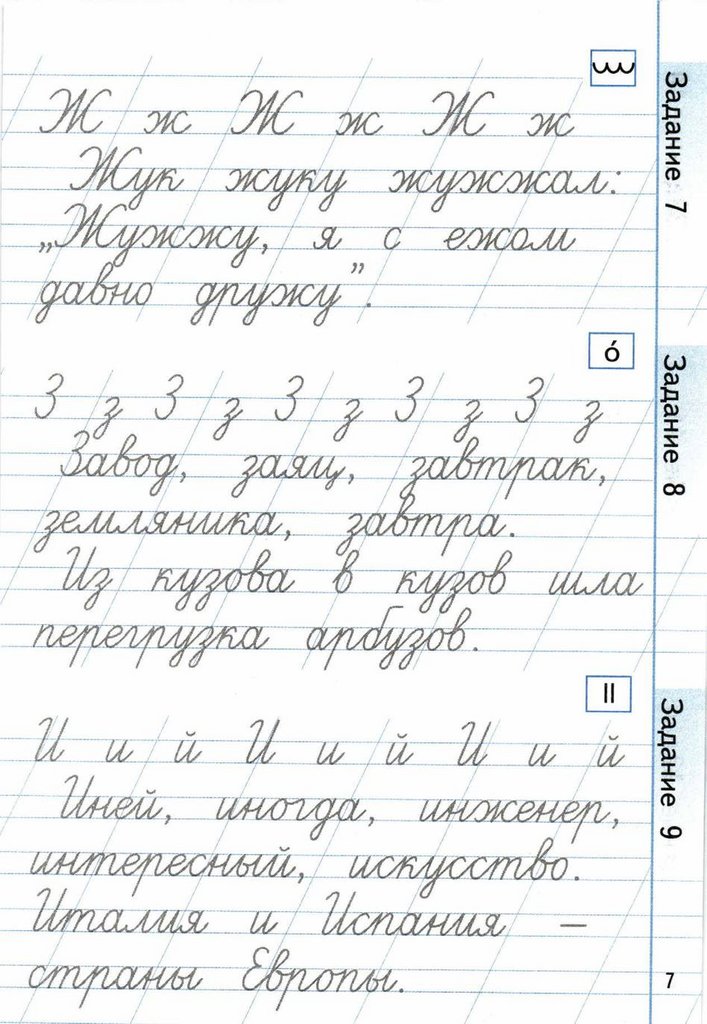 Задание 7
Ж ж Ж ж Ж ж
Жук жуку жужжал:
„Жужжу, я с ежом
давно дружу”.
Задание 8
ó
З з З з З з З з З з
Завод, заяц, завтрак,
земляника, завтра.
Из кузова в кузов шла
перегрузка арбузов.
Задание 9
II
И и й И и й И и й
Иней, иногда, инженер,
интересный, искусство.
Италия и Испания –
страны Европы.
7